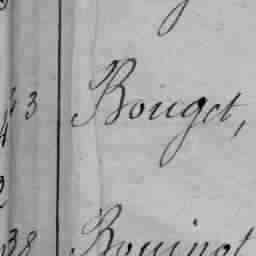 3 Bouget,
38 Bouinot